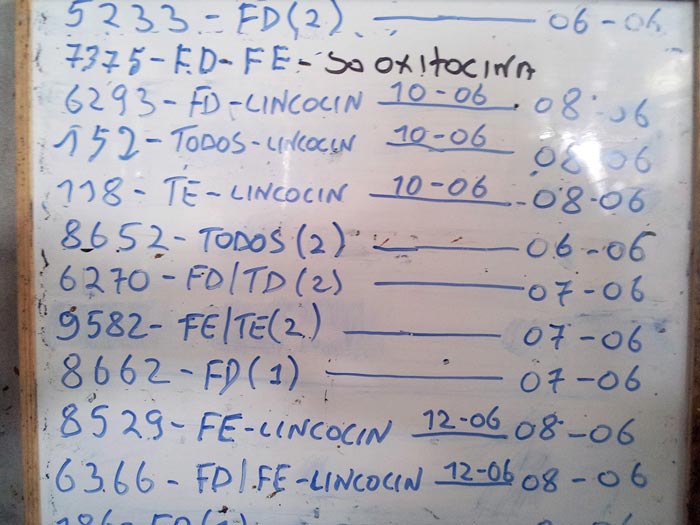 5233-FD(2) ——— 06-06
7375-FD-FE-SO OXITOCINA
6293-FD-LINCOCIN 10-06 08-06
152-TODOS-LINCOCIN 10-06 08-06
118-TE-LINCOCIN 10-06 08-06
8652-TODOS(2) ——— 06-06
6270-FD/TD(2) ——— 07-06
9582-FE/TE(2) ——— 07-06
8662-FD(1) ——— 07-06
8529-FE-LINCOCIN 12-06 08-06
6366-FD/FE-LINCOCIN 12-06 08-06